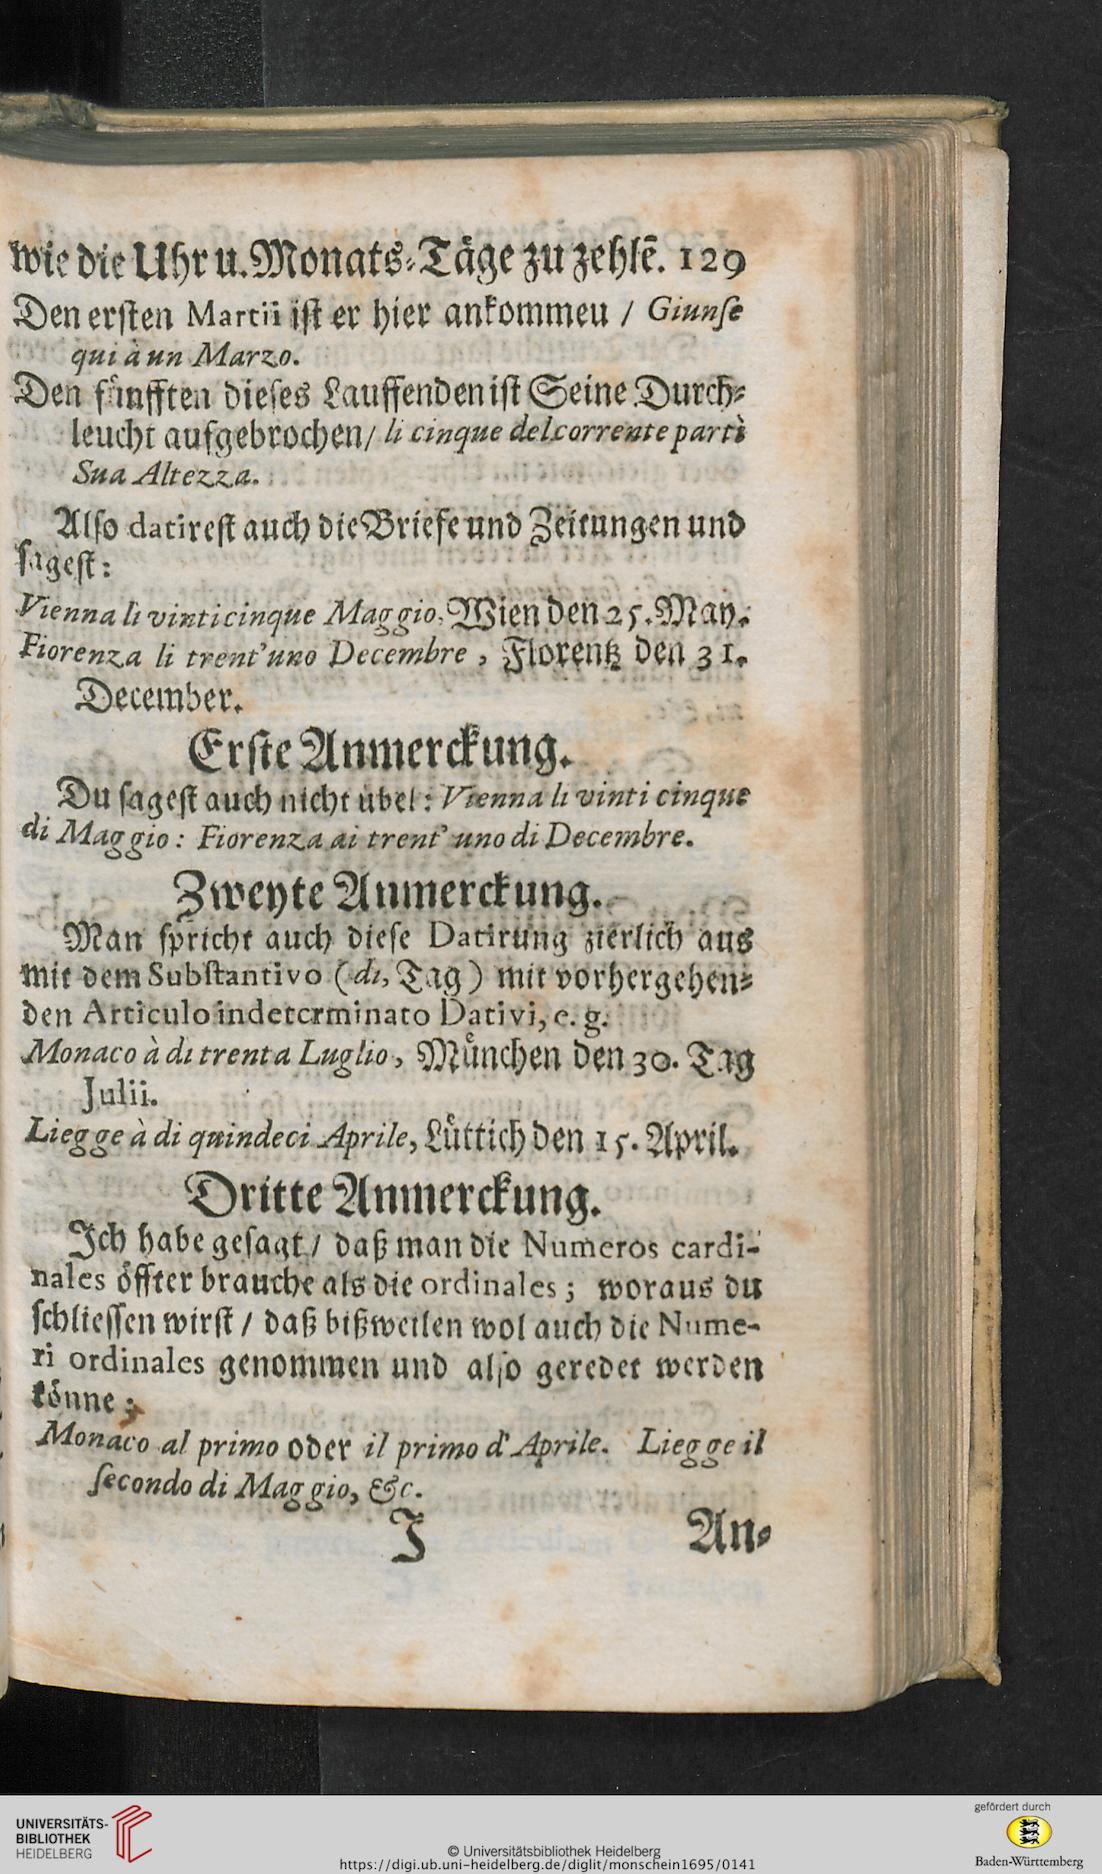 wie die Uhr u. Monats-Täge zu zehlē. 129
Den ersten Martii ist er hier ankommeu / Giunse
qui à un Marzo.
Den fünfften dieses Lauffenden ist Seine Durch-
leucht aufgebrochen / li cinque del corrente partì
Sua Altezza.
Also datirest auch die Briefe und Zeitungen und
sagest:
Vienna li vinticinque Maggio, Wien den 25. May.
Fiorenza li trent'uno Decembre, Florentz den 31.
December.
Erste Anmerckung.
Du sagest auch nicht übel: Vienna li vinti cinque
di Maggio: Fiorenza ai trent'uno di Decembre.
Zweyte Anmerckung.
Man spricht auch diese Datirung zierlich aus
mit dem Substantivo (di, Tag) mit vorhergehen-
den Articulo indeterminato Dativi, e. g.
Monaco à di trenta Luglio, München den 30. Tag
Julii.
Liegge à di quindeci Aprile, Lüttich den 15. April.
Dritte Anmerckung.
Ich habe gesagt / daß man die Numeros cardi-
nales öffter brauche als die ordinales; woraus du
schliessen wirst / daß bißweilen wol auch die Nume-
ri ordinales genommen und also geredet werden
könne;
Monaco al primo oder il primo d'Aprile. Liegge il
secondo di Maggio, &c.
J An-
UNIVERSITÄTS-
BIBLIOTHEK
HEIDELBERG
© Universitätsbibliothek Heidelberg
https://digi.ub.uni-heidelberg.de/diglit/monschein1695/0141
gefördert durch
Baden-Württemberg